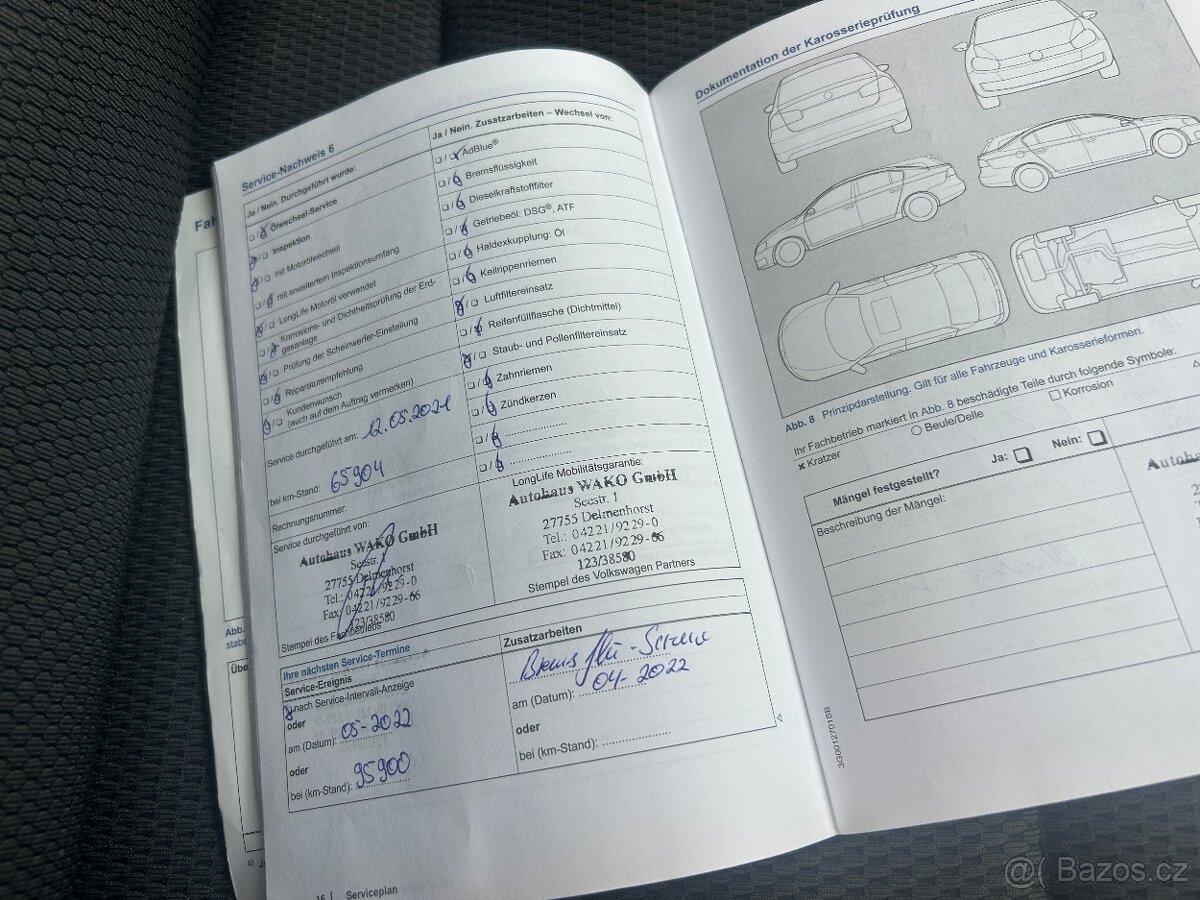 Fah
Service-Nachweis 6
Ja / Nein. Durchgeführt wurde:
❑/❑ Ölwechsel-Service
❑/❑ Inspektion
❑/❑ mit Motorölwechsel
❑/❑ mit erweitertem Inspektionsumfang
❑/❑ LongLife Motoröl verwendet
❑/❑ Korrosions- und Dichtheitsprüfung der Erd-
gasanlage
❑/❑ Prüfung der Scheinwerfer-Einstellung
❑/❑ Reparaturempfehlung
❑/❑ Kundenwunsch
(auch auf dem Auftrag vermerken)
Service durchgeführt am: 12.05.2021
bei km-Stand: 65904
Rechnungsnummer:
Service durchgeführt von:
Autohaus WAKO GmbH
Seestr. 1
27755 Delmenhorst
Tel.: 04221/9229-0
Fax: 04221/9229-66
123/38580
Stempel des Fachbetriebs
Ja / Nein. Zusatzarbeiten – Wechsel von:
❑/❑ AdBlue®
❑/❑ Bremsflüssigkeit
❑/❑ Dieselkraftstofffilter
❑/❑ Getriebeöl: DSG®, ATF
❑/❑ Haldexkupplung: Öl
❑/❑ Keilrippenriemen
❑/❑ Luftfiltereinsatz
❑/❑ Reifenfüllflasche (Dichtmittel)
❑/❑ Staub- und Pollenfiltereinsatz
❑/❑ Zahnriemen
❑/❑ Zündkerzen
❑/❑ ....................
❑/❑ ....................
LongLife Mobilitätsgarantie:
Autohaus WAKO GmbH
Seestr. 1
27755 Delmenhorst
Tel.: 04221/9229-0
Fax: 04221/9229-66
123/38580
Stempel des Volkswagen Partners
Ihre nächsten Service-Termine
Service-Ereignis
❑ nach Service-Intervall-Anzeige
oder
am (Datum): 05-2022
oder
bei (km-Stand): 95900
Zusatzarbeiten
Bremsflü-Service
am (Datum): 04-2022
oder
bei (km-Stand): ....................
16 | Serviceplan
Abb.
stabe
Übe
a)
Dokumentation der Karosserieprüfung
Abb. 8 Prinzipdarstellung. Gilt für alle Fahrzeuge und Karosserieformen.
Ihr Fachbetrieb markiert in Abb. 8 beschädigte Teile durch folgende Symbole:
✖ Kratzer ○ Beule/Delle □ Korrosion
Mängel festgestellt? Ja: ❑ Nein: ❑
Beschreibung der Mängel:
Autoha
3G0012701SB
@( Bazos.cz